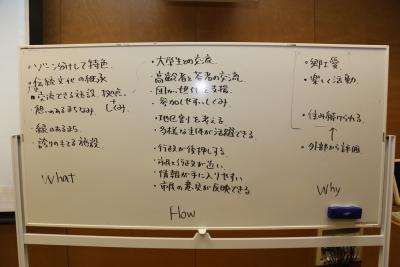 ・ゾーン分けして特色
・伝統文化の継承
・交流できる施設 拠点
+しくみ
・憩いのあるまちなみ
・緑のあるまち
・誇りのもてる施設
What
・大学生との交流
・高齢者と若者の交流
・団体、世代
・参加しやすいしくみ
・地区割を考える
・多様な主体が活躍できる
・行政が後押しする
・市民と行政が近い
・情報が手に入りやすい
・市民の意見が反映できる
How
・郷土愛
・楽しく活動
・住み続けられる
↑
・外部から評価
Why